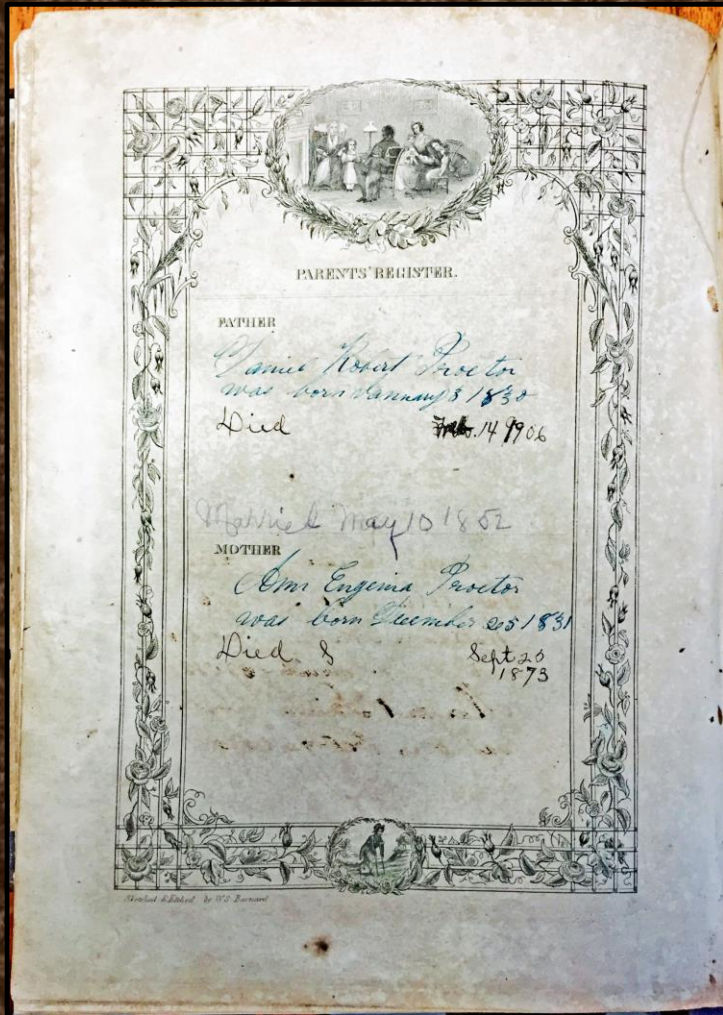 PARENTS' REGISTER.
FATHER
Daniel Robert Proctor
was born January 8 1830
Died Feb. 14 1906
Married May 10 1852
MOTHER
Ann Eugenia Proctor
was born December 25 1831
Died S Sept 25
1873
Sketched & Etched by W.S. Barnard